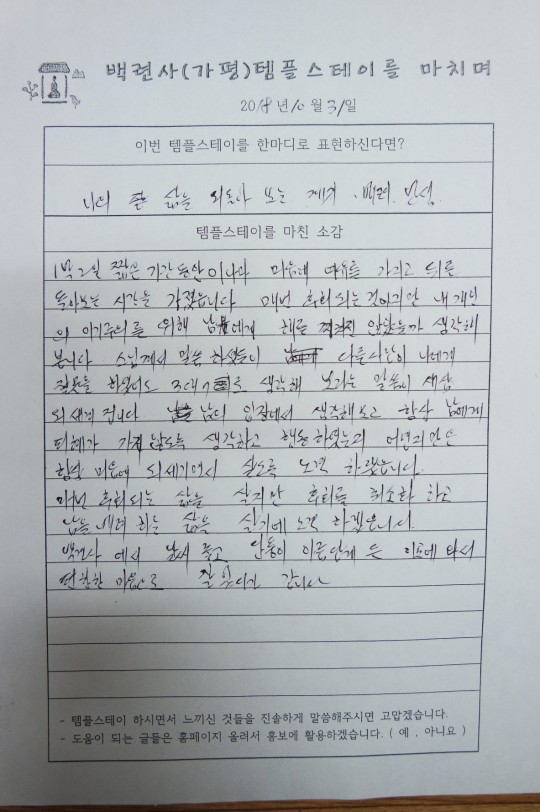 백련사(가평)템플스테이를 마치며
2018년 10월 31일
이번 템플스테이를 한마디로 표현하신다면?
나의 삶을 되돌아 보는 계기, 배려, 반성
템플스테이를 마친 소감
1박2일 짧은 기간동안이나마 마음에 여유를 가지고 뒤를
돌아보는 시간을 가졌습니다 매번 후회되는것이지만 내 개인
의 이기주의를 위해 남에게 해를 끼치진 않았는가 생각해
봅니다 스님께서 말씀 하셨듯이 다른사람이 나에게
잘못을 하였어도 생각해 보라는 말씀이 새삼
되세겨 집니다 남의 입장에서 생각해보고 항상 남에게
피해가 가지 않도록 생각하고 행동 하였는지
항상 마음에 되세기면서 살도록 노력 하겠습니다.
매번 후회되는 삶을 살지만 후회를 최소화 하고
남을 배려 하는 삶을 살기에 노력 하겠습니다.
백련사 에서 날씨 좋고 단풍이 아름답게 든
편안한 마음으로 잘 있다가 갑니다
- 템플스테이 하시면서 느끼신 것들을 진솔하게 말씀해주시면 고맙겠습니다.
- 도움이 되는 글들은 홈페이지 올려서 홍보에 활용하겠습니다. ( 예 , 아니요 )